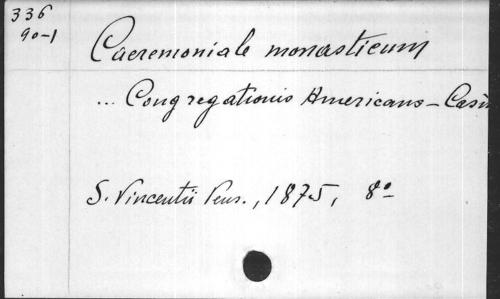 336
90-1
Caeremoniale monasticum
... Congregationis Americano-Casin
S. Vincentii Pens., 1875, 8º